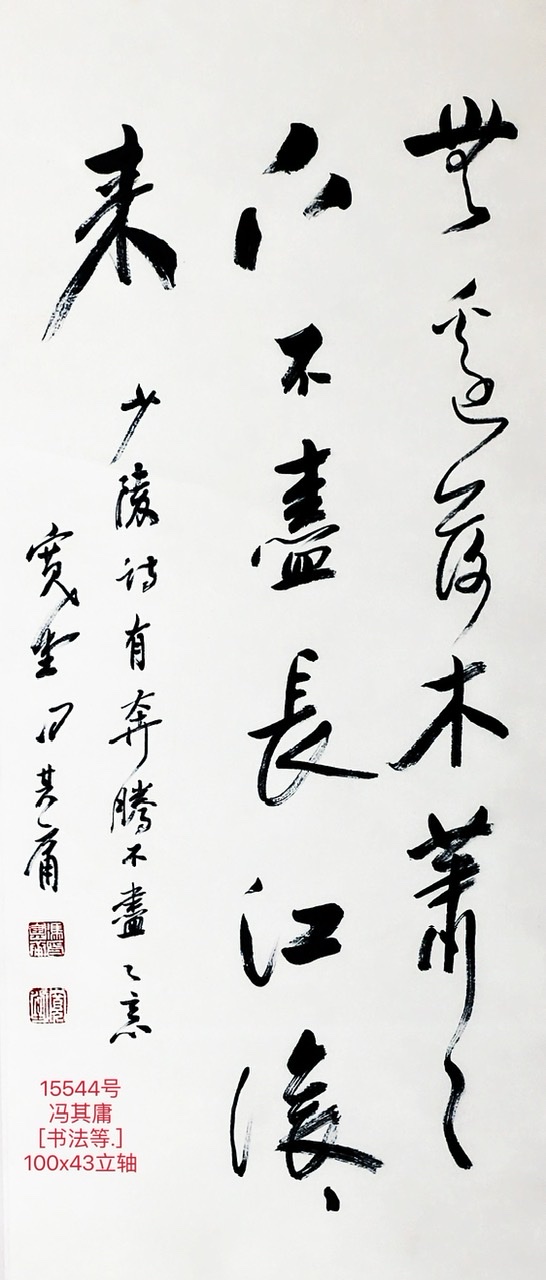 無邊落木蕭〻
下不盡長江滾〻
来
少陵詩有奔騰不盡之意
寬堂馮其庸
15544号
冯其庸
[书法等.]
100x43立轴